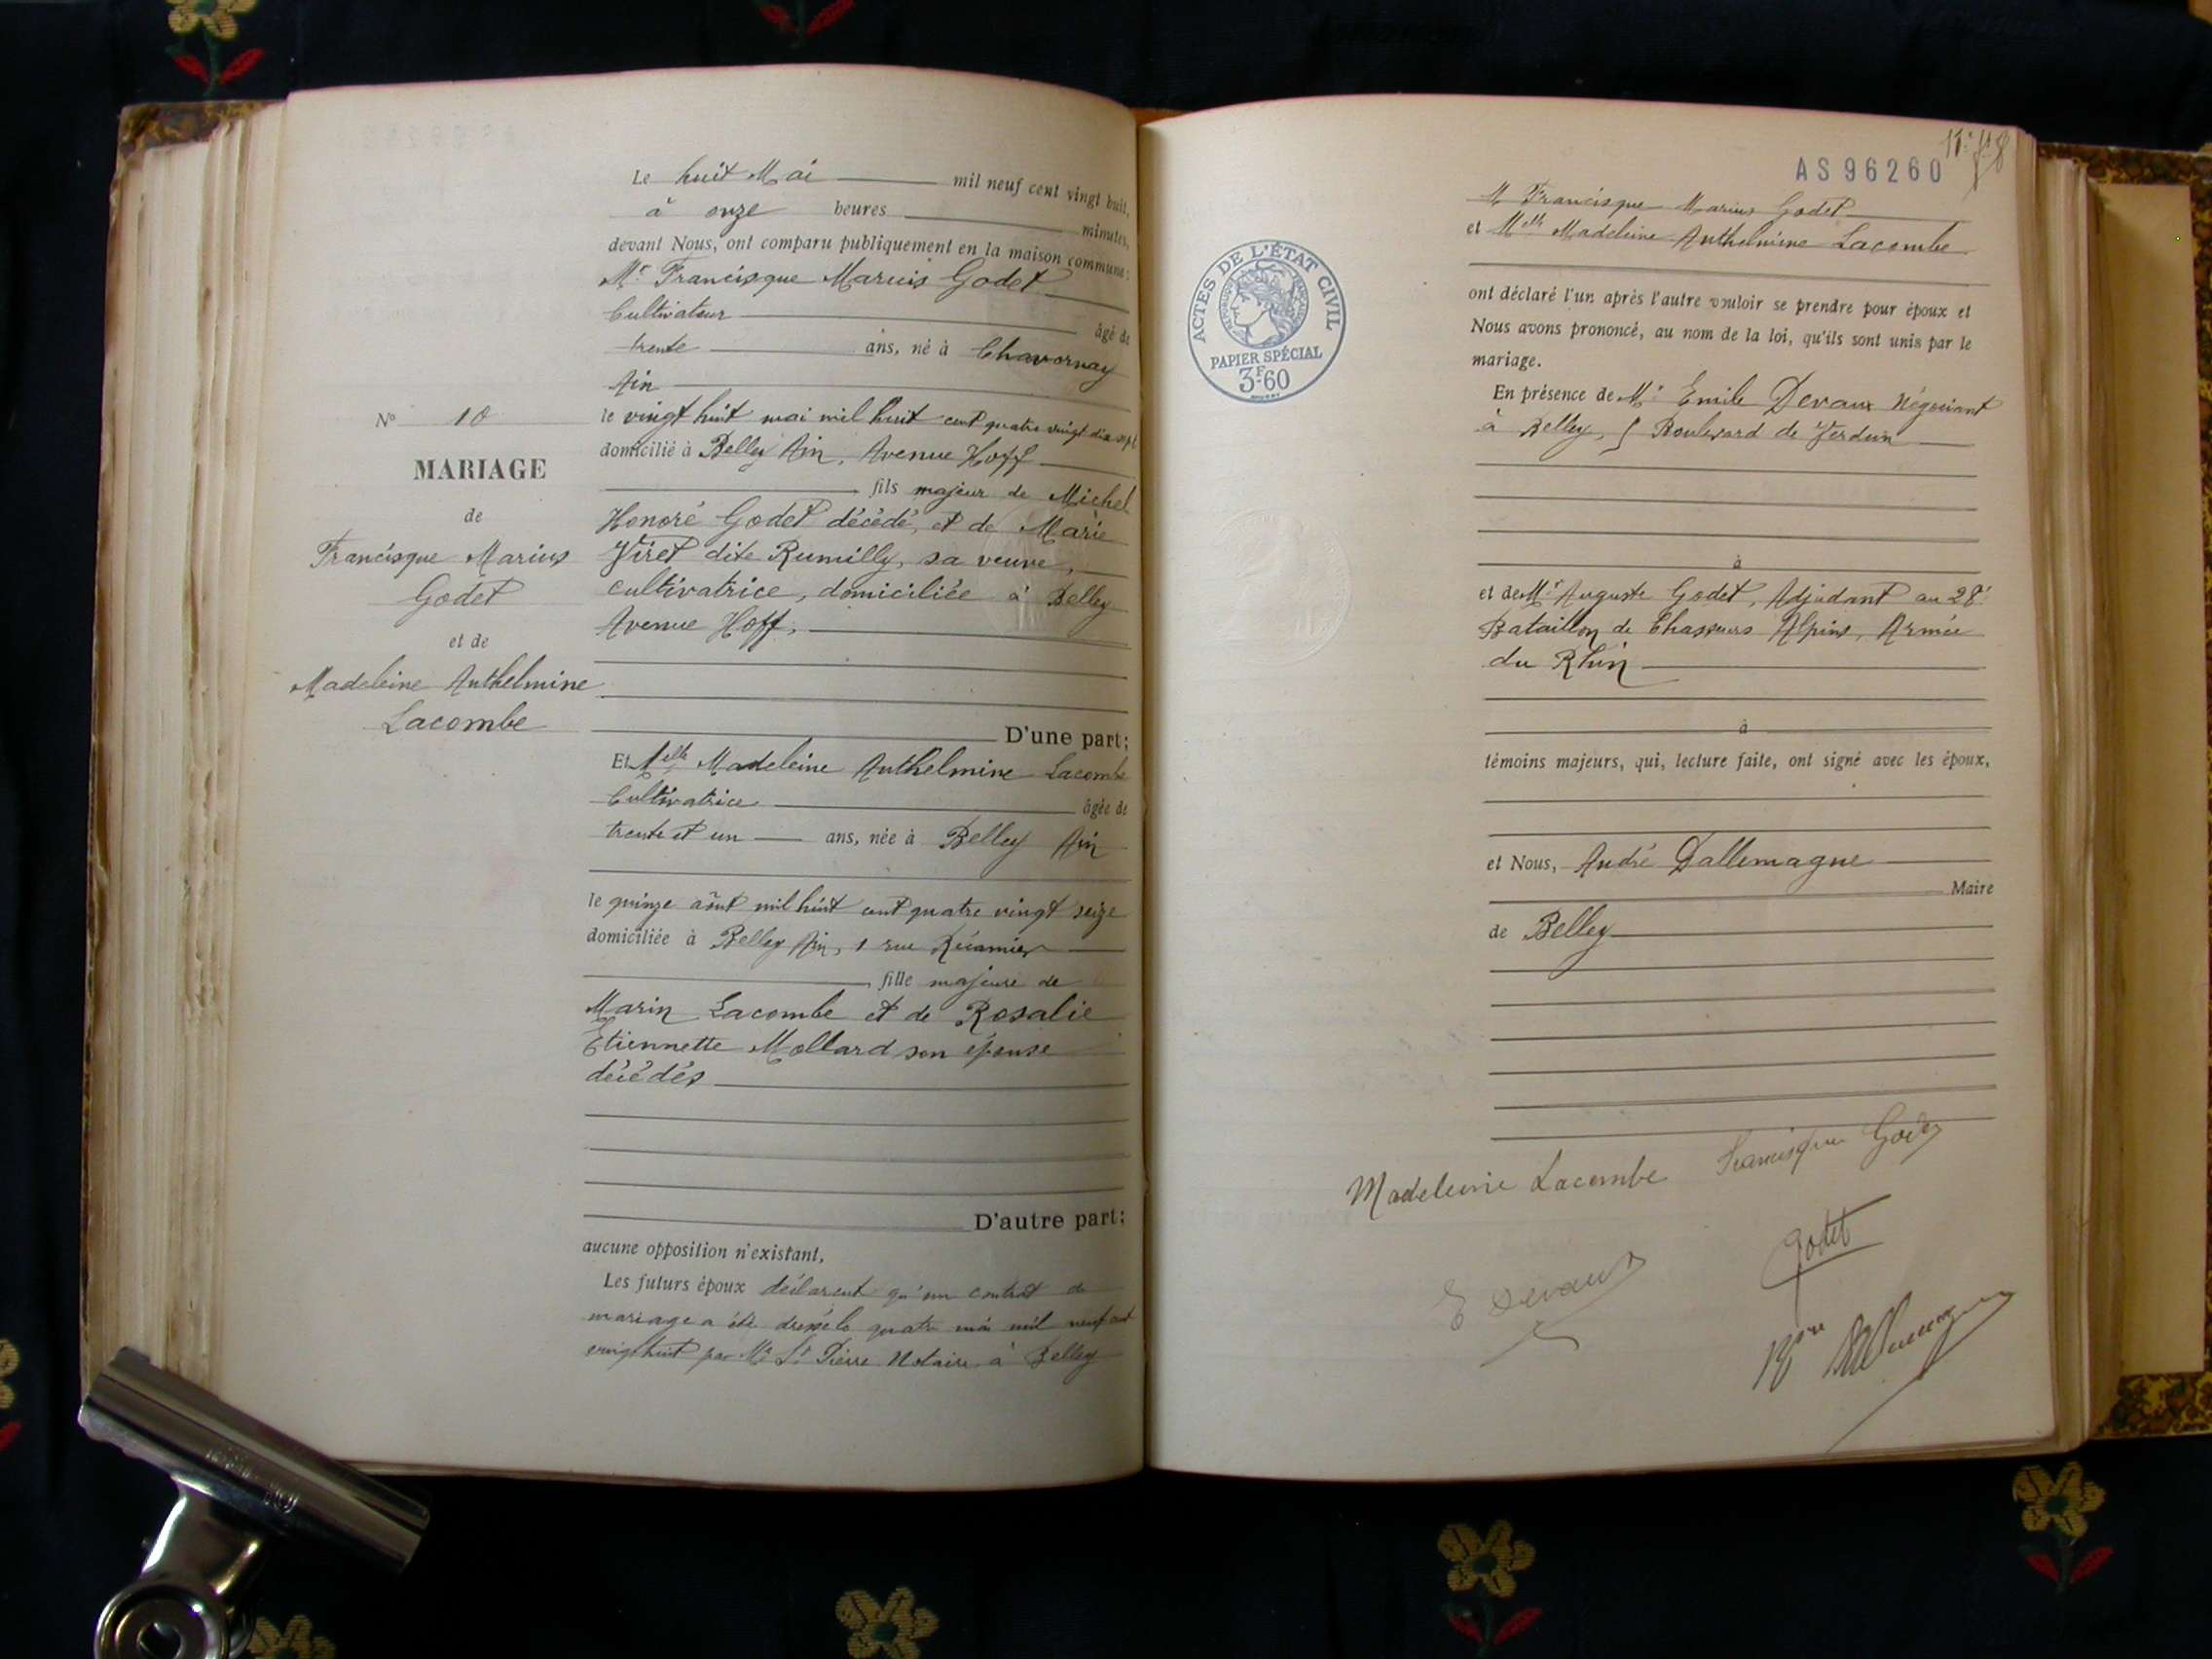 Le huit Mai mil neuf cent vingt huit,
à onze heures minutes,
devant Nous, ont comparu publiquement en la maison commune:
Mr Francisque Marius Godet
Cultivateur âgé de
trente ans, né à Chavornay
Ain
le vingt huit mai mil huit cent quatre vingt dix sept
domicilié à Belley Ain, Avenue Hoff
fils majeur de Michel
Honoré Godet décédé, et de Marie
Viret dite Rumilly, sa veuve,
cultivatrice, domiciliée à Belley
Avenue Hoff,
D'une part;
Et Melle Madeleine Anthelmine Lacombe
Cultivatrice âgée de
trente et un ans, née à Belley Ain
le quinze août mil huit cent quatre vingt seize
domiciliée à Belley Ain, 1 rue Récamier
fille majeure de
Marin Lacombe et de Rosalie
Etiennette Mollard son épouse
décédés
D'autre part;
aucune opposition n'existant,
Les futurs époux déclarent qu'un contrat de
mariage a été dressé le quatre mai mil neuf cent
vingt huit par Me St Pierre Notaire à Belley
No 10
MARIAGE
de
Francisque Marius
Godet
et de
Madeleine Anthelmine
Lacombe
AS 96260
M Francisque Marius Godet
et Melle Madeleine Anthelmine Lacombe
ont déclaré l'un après l'autre vouloir se prendre pour époux et
Nous avons prononcé, au nom de la loi, qu'ils sont unis par le
mariage.
En présence de Mr Emile Devaux Négociant
à Belley, Boulevard de Verdun
à
et de Mr Auguste Godet, Adjudant au 28e
Bataillon de Chasseurs Alpins, Armée
du Rhin
à
témoins majeurs, qui, lecture faite, ont signé avec les époux,
et Nous, André Dallemagne
Maire
de Belley
Madeleine Lacombe Francisque Godet
Godet
E Devaux
Bon Dallemagne
ACTES DE L'ÉTAT CIVIL
RÉPUBLIQUE FRANÇAISE
PAPIER SPÉCIAL
3F60